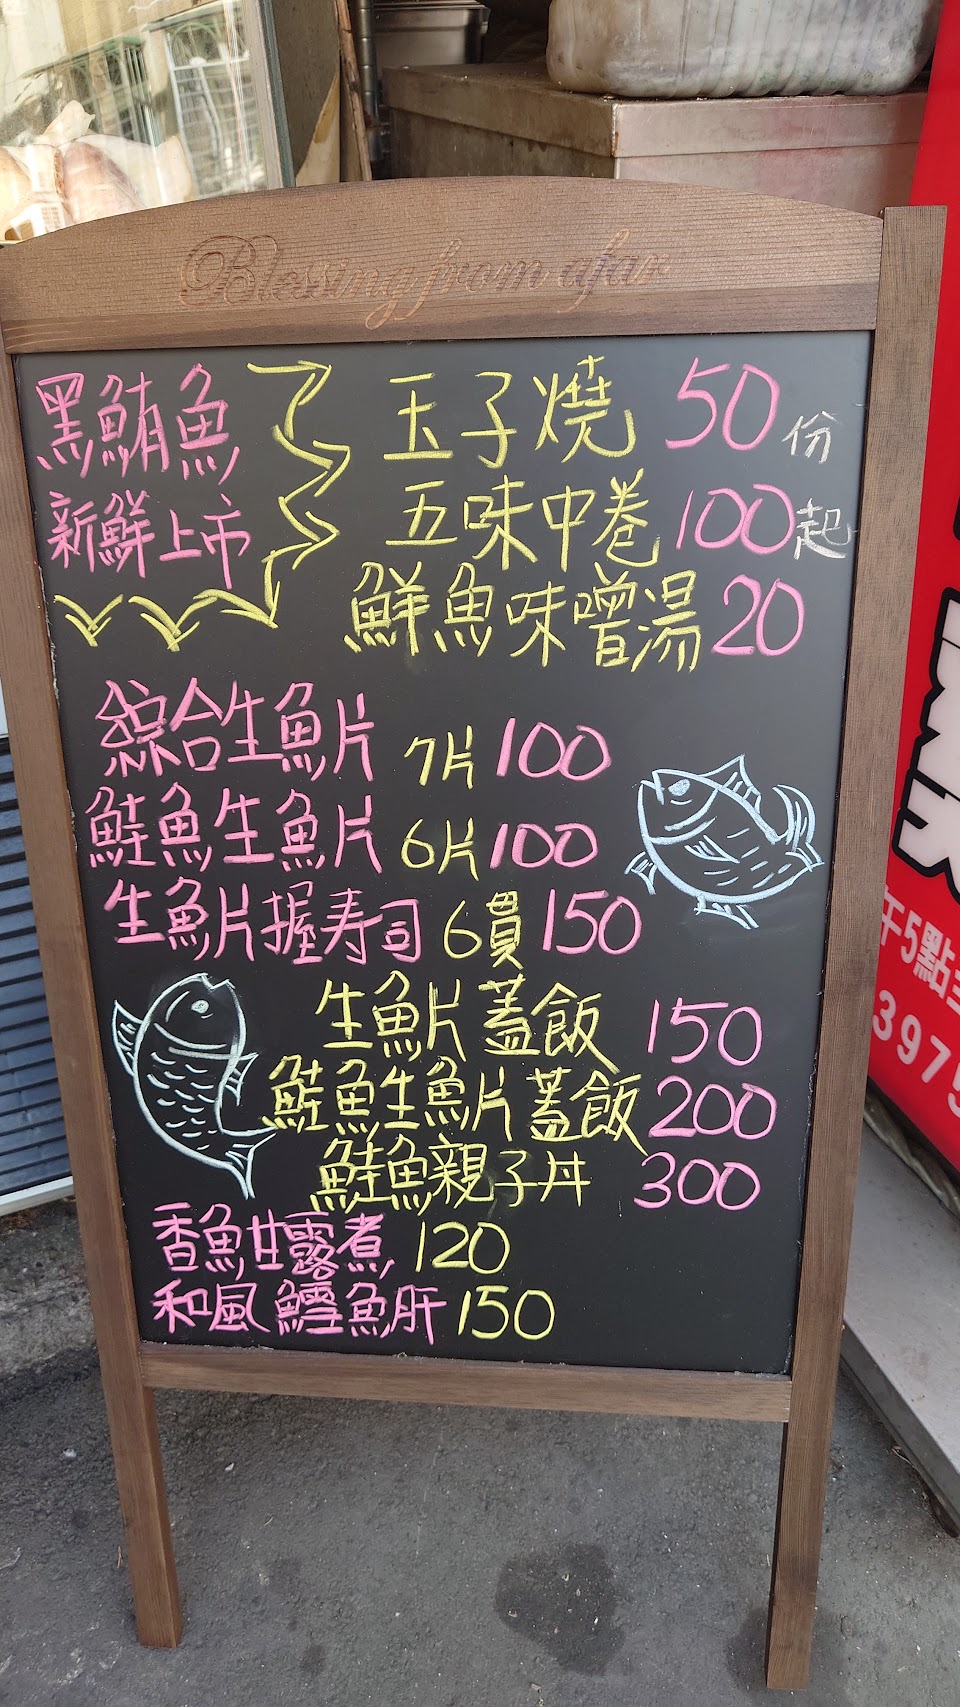 Blessing from afar
黑鮪魚
新鮮上市
玉子燒 50份
五味中卷 100起
鮮魚味噌湯 20
綜合生魚片 7片 100
鮭魚生魚片 6片 100
生魚片握寿司 6貫 150
生魚片蓋飯 150
鮭魚生魚片蓋飯 200
鮭魚親子丼 300
香魚甘露煮 120
和風鱈魚肝 150
午5點
3975